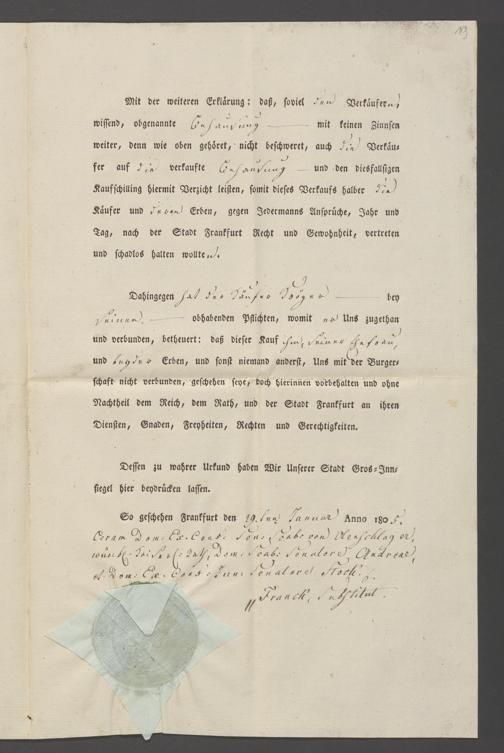 Mit der weiteren Erklärung: daß, soviel den Verkäufern,
wissend, obgenannte Behausung mit keinen Zinnsen
weiter, denn wie oben gehöret, nicht beschweret, auch die Verkäu-
fer auf die verkaufte Behausung und den diesfallsigen
Kaufschilling hiermit Verzicht leisten, somit dieses Verkaufs halber die
Käufer und deren Erben, gegen Jedermanns Ansprüche, Jahr und
Tag, nach der Stadt Frankfurt Recht und Gewohnheit, vertreten
und schadlos halten wollten.
Dahingegen hat der Käufer bey
seinen obhabenden Pflichten, womit er Uns zugethan
und verbunden, betheuert: daß dieser Kauf ihm, seiner Ehefrau,
und beyder Erben, und sonst niemand anderst, Uns mit der Burger-
schaft nicht verbunden, geschehen seye, doch hierinnen vorbehalten und ohne
Nachtheil dem Reich, dem Rath, und der Stadt Frankfurt an ihren
Diensten, Gnaden, Freyheiten, Rechten und Gerechtigkeiten.
Dessen zu wahrer Urkund haben Wir Unserer Stadt Gros-Inn-
siegel hier beydrücken lassen.
So geschehen Frankfurt den 29. Januar Anno 1805.
Coram Dom: Ex: Cons: Sen:
Dom: Senatore Andreae,
et Dom: Ex: Cons: Jun: Senatore Stock.
Franck, Substitut.